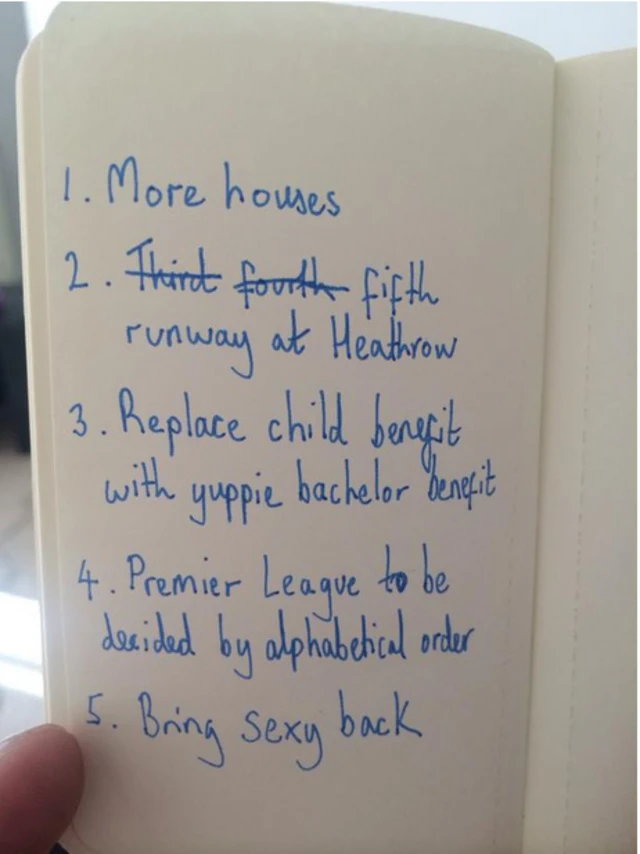 1. More houses
2. Third fourth fifth
runway at Heathrow
3. Replace child benefit
with yuppie bachelor benefit
4. Premier League to be
decided by alphabetical order
5. Bring sexy back